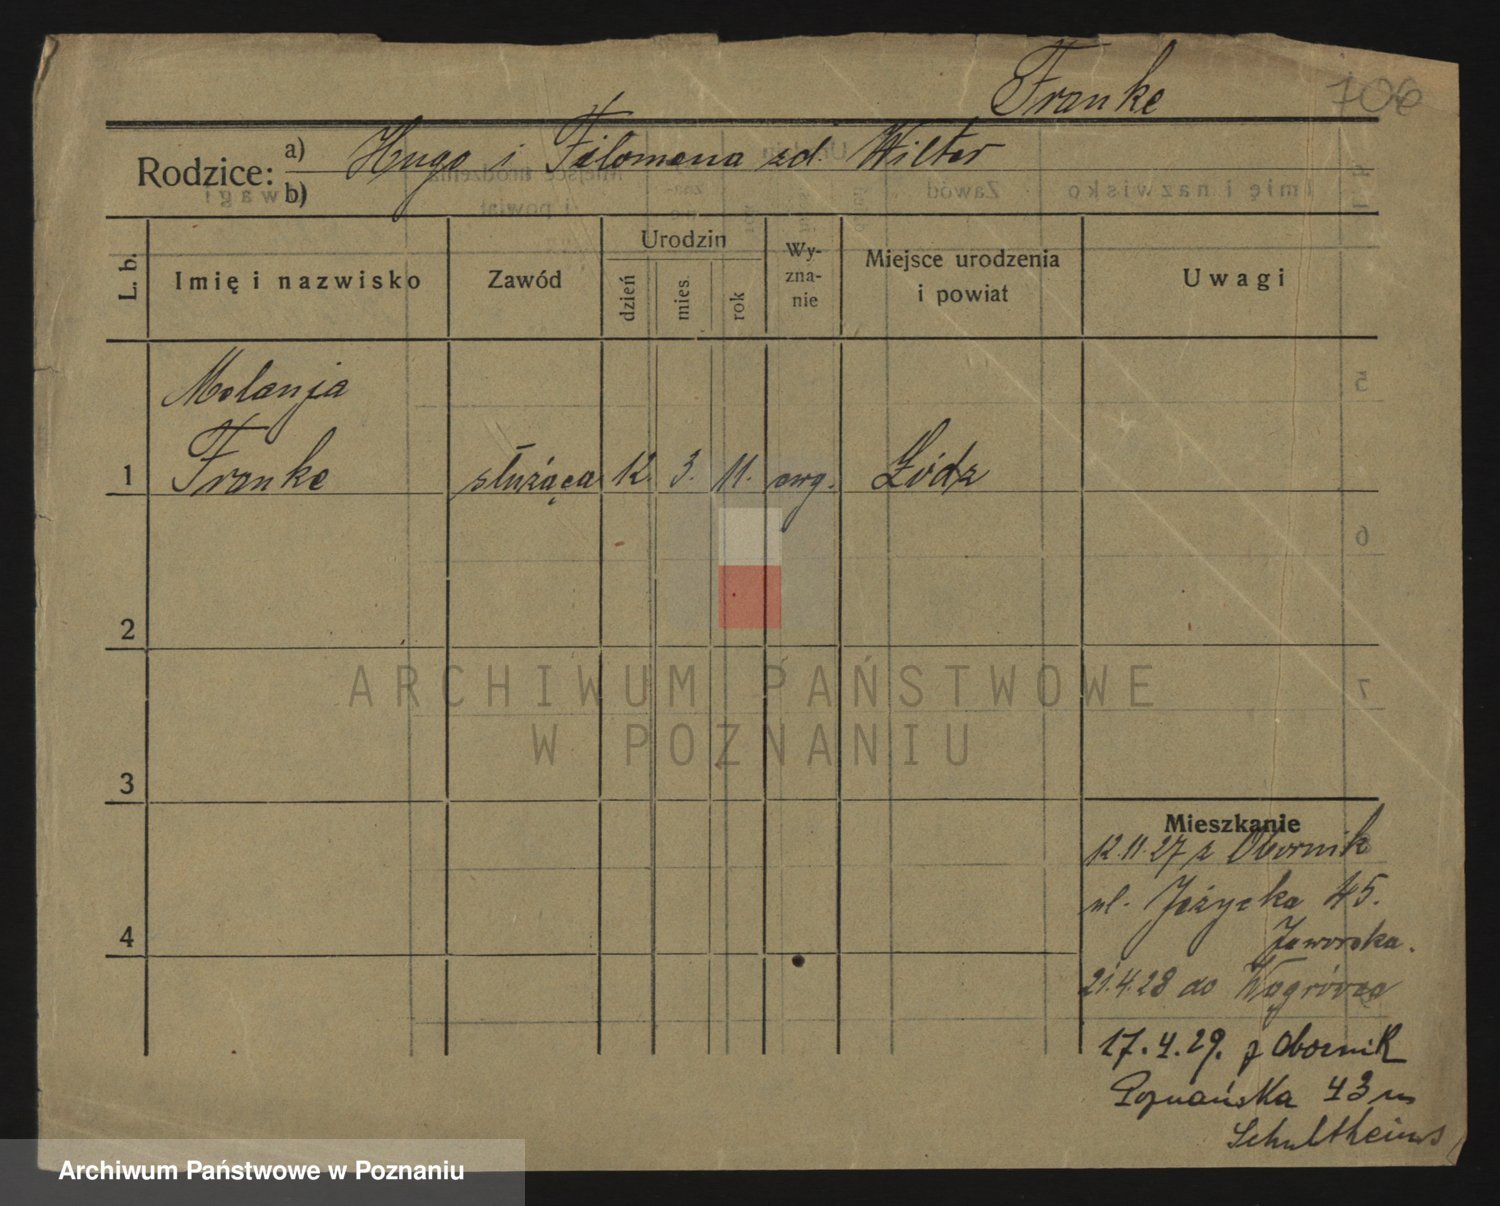 Franke
106
Rodzice: a) Hugo i Filomena zd. Wilter
b)
L. b.
Imię i nazwisko
Zawód
Urodzin
dzień
mies.
rok
Wy-
zna-
nie
Miejsce urodzenia
i powiat
Uwagi
Melanja
1 Franke służąca 12. 3. 11. ewg. Łódz
2
ARCHIWUM PAŃSTWOWE
W POZNANIU
3
4
Mieszkanie
12.11.27 z Obornik
ul. Jeżycka 45.
Jaworska.
21.4.28 do
17.4.29. z Obornik
Poznańska 43 m
Schultheiss
Archiwum Państwowe w Poznaniu